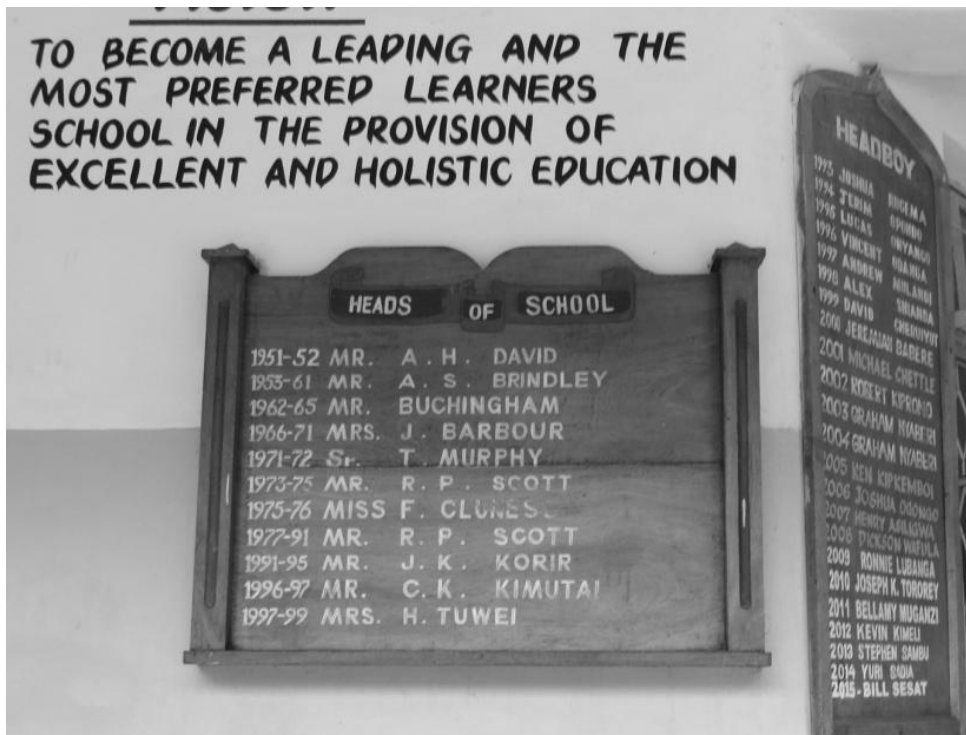 TO BECOME A LEADING AND THE
MOST PREFERRED LEARNERS
SCHOOL IN THE PROVISION OF
EXCELLENT AND HOLISTIC EDUCATION
HEADS OF SCHOOL
1951-52 MR. A. H. DAVID
1953-61 MR. A. S. BRINDLEY
1962-65 MR. BUCHINGHAM
1966-71 MRS. J. BARBOUR
1971-72 Sr. T. MURPHY
1973-75 MR. R. P. SCOTT
1975-76 MISS F. CLUNES
1977-91 MR. R. P. SCOTT
1991-95 MR. J. K. KORIR
1996-97 MR. C. K. KIMUTAI
1997-99 MRS. H. TUWEI
HEADBOY
1993 JOSHUA RUGEMA
1994 JERIM OPONDO
1995 LUCAS ONYANGO
1996 VINCENT ODANGA
1997 ANDREW
1998 ALEX SHIANDA
1999 DAVID CHERUIYOT
2000 JEREMIAH BABERE
2001 MICHAEL CHETTLE
2002 ROBERT KIPRONO
2003 GRAHAM NYABERI
2004 GRAHAM NYABERI
2005 KEN KIPKEMBOI
2006 JOSHUA ODONGO
2007 HENRY ASILIGWA
2008 DICKSON WAFULA
2009 RONNIE LUBANGA
2010 JOSEPH K. TOROREY
2011 BELLAMY MUGANZI
2012 KEVIN KIMELI
2013 STEPHEN SAMBU
2014 YURI SADIA
2015- BILL SESAT